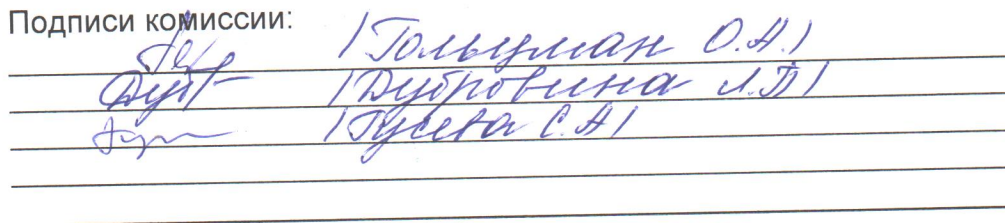 Подписи комиссии:
/Гольцман О.А./
/Дубровина Л.В/
/Гусева С.А/